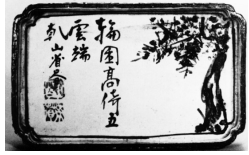 輪囷高倚五
雲端
乾山省書